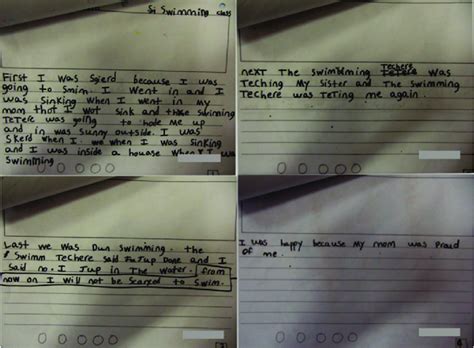 Si Swimming class
First I was Sgierd because I was
going to Smin. I Went in and I
was sinking when I went in my
mom that I wot sink and the swimming
Tetere was going to hode me up
and in was sunny outside. I was
Skerd when I we when I was sinking
and I was inside a houase when I
was swimming
next The swimming Techers was
Teching My Sister and The swimming
Techere was Teting me again.
Last we was Dun swimming. the
Swimm Techere said Jup Done and I
said no. I Jup in The water. from
now on I will not be scared to swim.
I was happy because my mom was proud
of me.
4